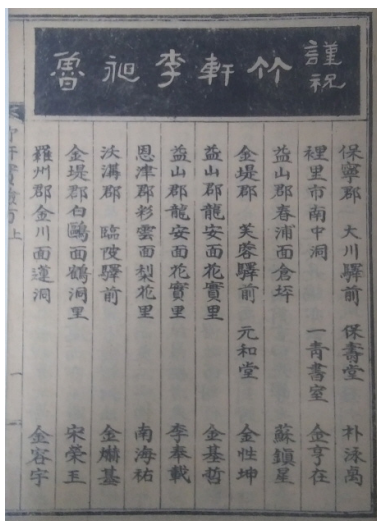 謹祝
竹軒李昶魯
保寧郡 大川驛前 保壽堂 朴泳卨
裡里市南中洞 一青書室 金亨在
益山郡春浦面倉坪 蘇鎭星
金堤郡 芙蓉驛前 元和堂 金性坤
益山郡龍安面花實里 金基哲
益山郡龍安面花實里 李奉載
恩津郡彩雲面梨花里 南海祐
沃溝郡 臨陂驛前 金基
金堤郡白鷗面鶴洞里 宋榮玉
羅州郡金川面蓮洞 金容宇